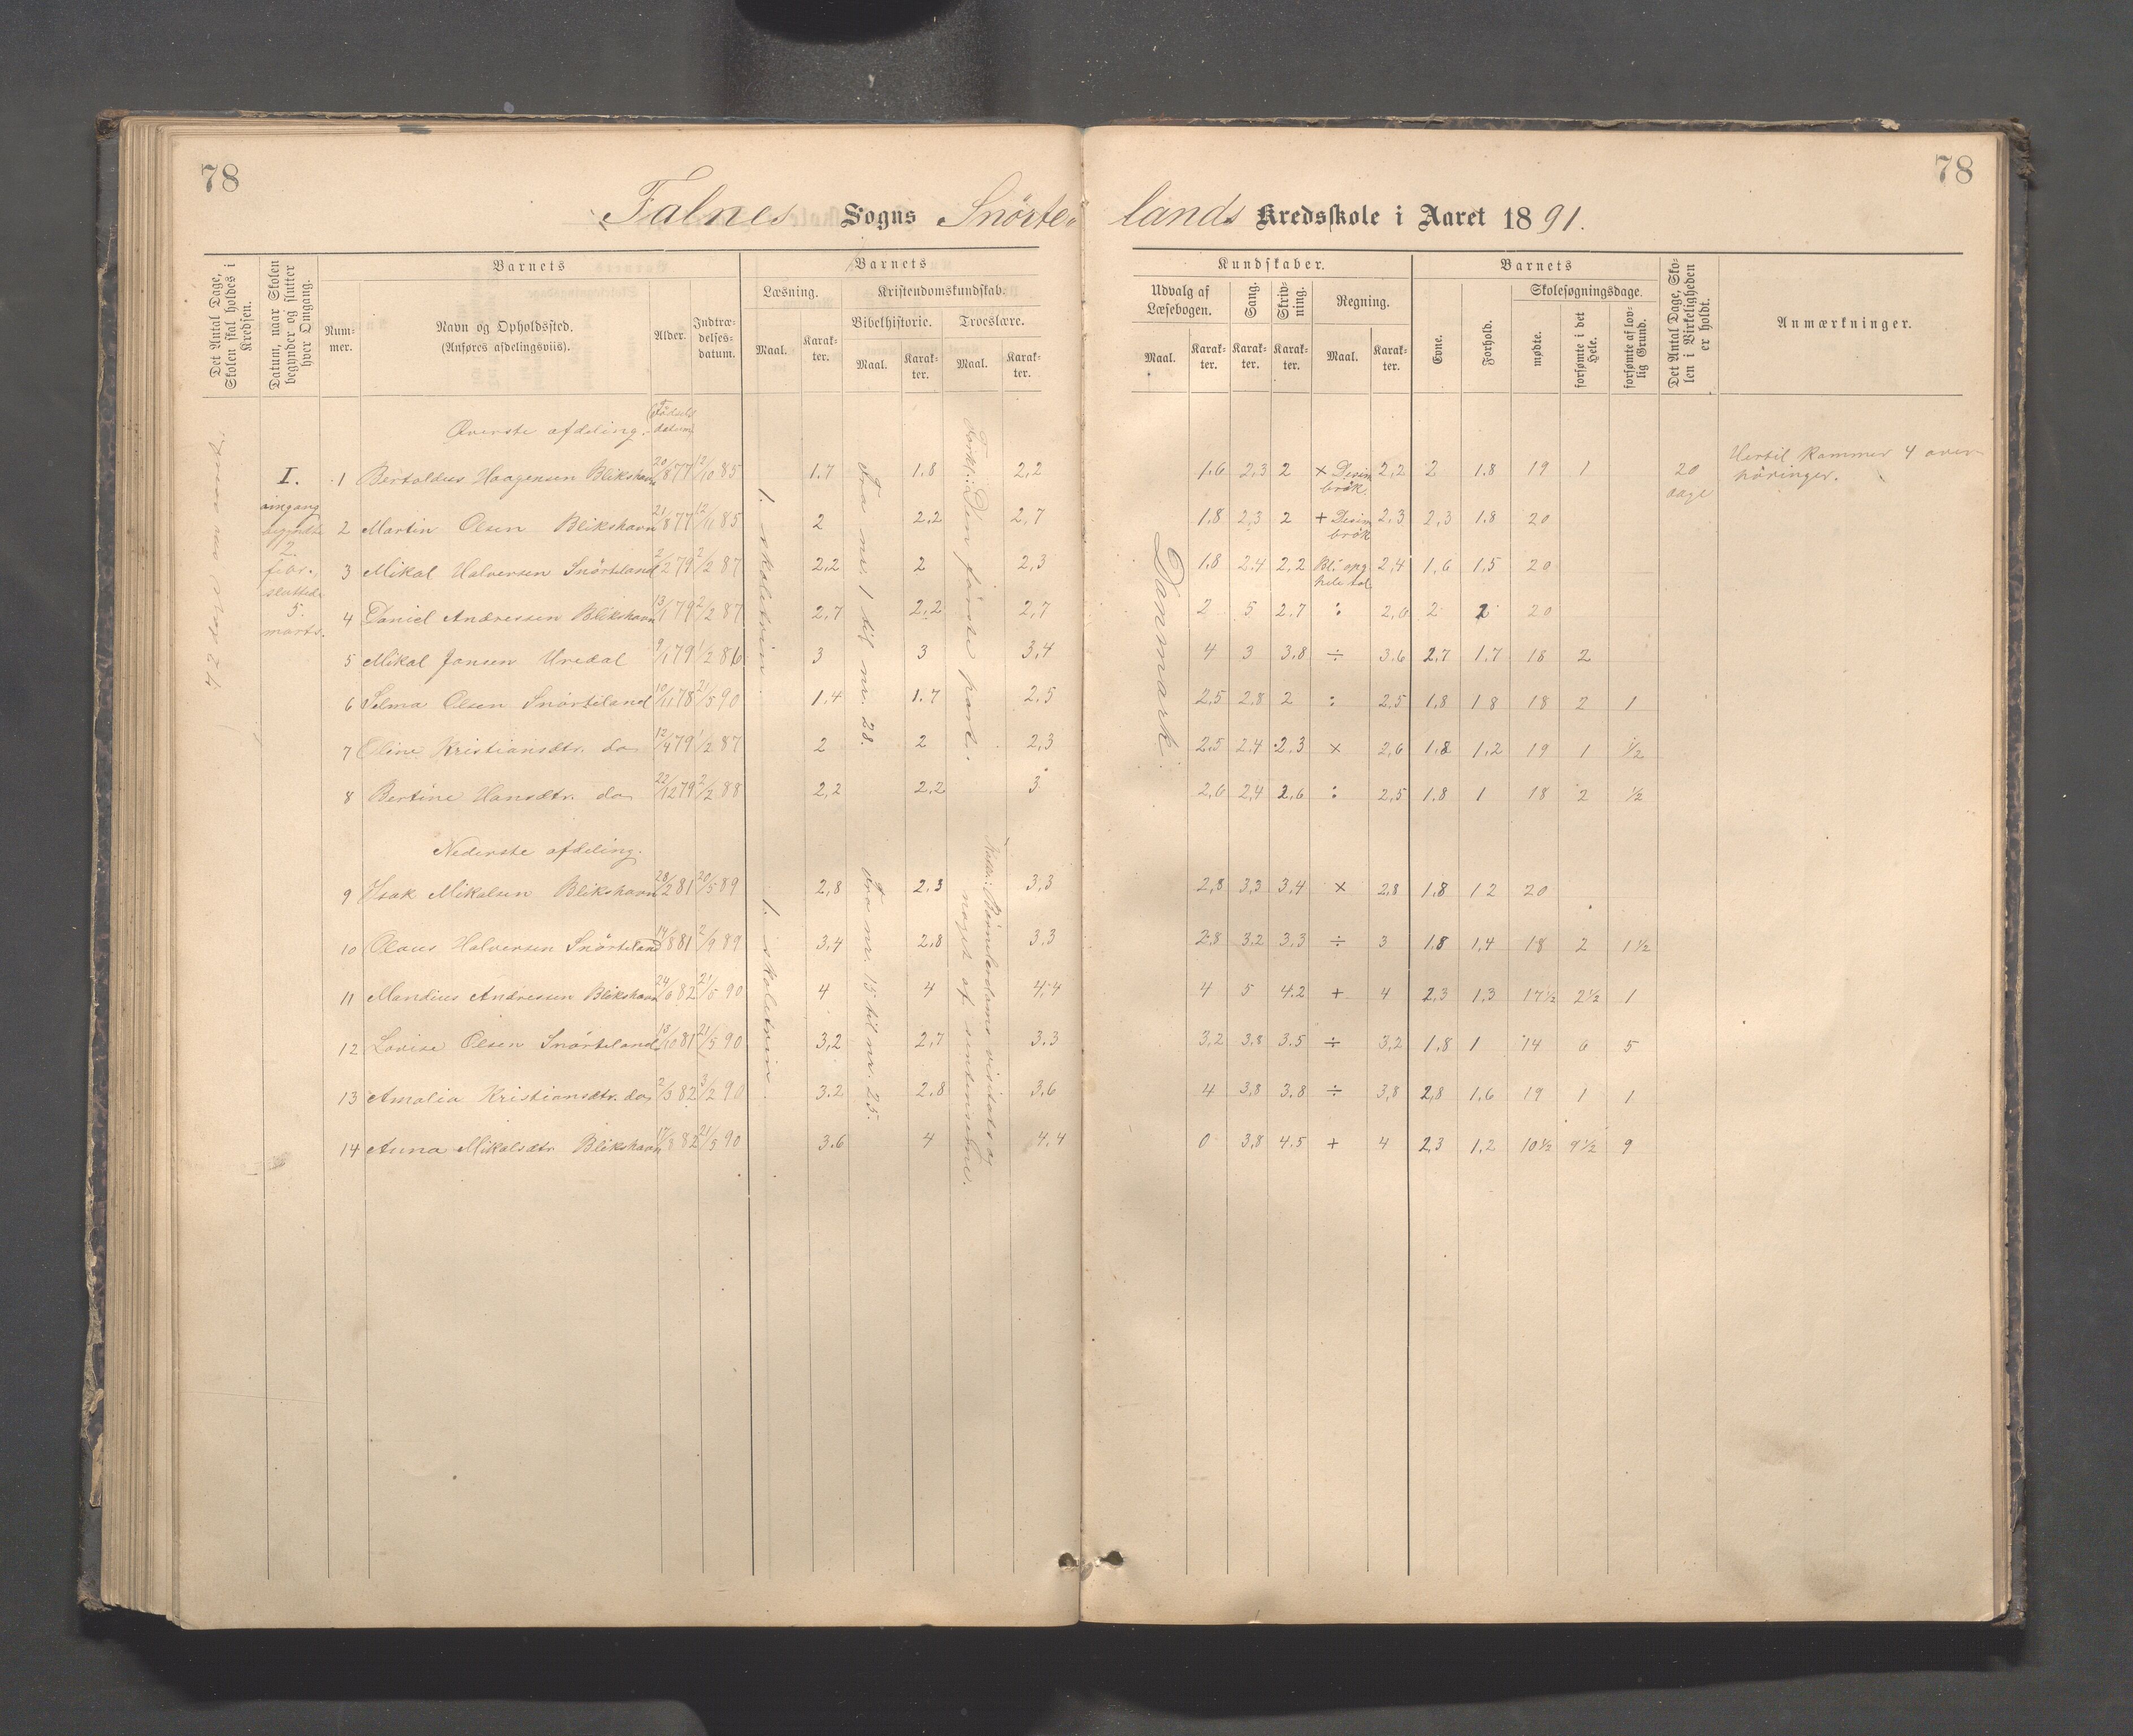 78
78
Falnes Sogns Snörte- lands Kredsskole i Aaret 1891.
Det Antal Dage, Skolen skal holdes i Kredsen.
Datum, naar Skolen begynder og slutter hver Omgang.
Barnets
Num- mer.
Navn og Opholdssted.
(Anføres afdelingsviis).
Alder.
Indtræ- delses- datum.
Barnets
Læsning.
Maal.
Karak- ter.
Kristendomskundskab.
Bibelhistorie.
Maal.
Karak- ter.
Troeslære.
Maal.
Karak- ter.
Kundskaber.
Udvalg af Læsebogen.
Maal.
Karak- ter.
Sang.
Karak- ter.
Skriv- ning.
Karak- ter.
Regning.
Maal.
Karak- ter.
Barnets
Evne.
Forhold.
Skolesøgningsdage.
mødte.
forsømte i det Hele.
forsømte af lov- lig Grund.
Det Antal Dage, Sko- len i Virkeligheden er holdt.
Anmærkninger.
Øverste afdeling. Födsels datum
I. omgang begyndte 2. febr., sluttede 5. marts.
1. skoletrin.
Fra nr. 1 til nr. 28.
Forkl.: Den förste part.
Danmark.
1 Bertoldus Haagensen Blikshavn 20/8 77 12/10 85 1.7 1.8 2,2 1.6 2,3 2 × Desim brök. 2,2 2 1.8 19 1 20 dage Hertil kommer 4 over- höringer.
2 Martin Olsen Blikshavn 21/8 77 12/11 85 2 2,2 2,7 1.8 2,3 2 + Desim brök 2,3 2,3 1.8 20
3 Mikal Halversen Snörteland 2/2 79 2/2 87 2,2 2 2,3 1.8 2.4 2,2 hele tal 2,4 1,6 1,5 20
4 Daniel Andressen Blikshavn 13/1 79 2/2 87 2,7 2,2 2,7 2 5 2.7 : 2,6 2 2 20
5 Mikal Jansen Uredal 9/1 79 1/2 86 3 3 3,4 4 3 3.8 ÷ 3.6 2,7 1.7 18 2
6 Selma Olsen Snörteland 10/11 78 21/5 90 1,4 1.7 2,5 2,5 2,8 2 : 2,5 1,8 1 8 18 2 1
7 Oline Kristiansdtr. do 12/4 79 1/2 87 2 2 2,3 2,5 2,4 2.3 × 2,6 1,8 1,2 19 1 1/2
8 Bertine Hansdtr. do 22/12 79 2/2 88 2,2 2,2 3 2,6 2,4 2,6 : 2,5 1.8 1 18 2 1/2
Nederste afdeling.
1. skoletrin.
Fra nr. 15 til nr. 25.
noget af sentenserne.
9 Isak Mikalsen Blikshavn 28/2 81 20/5 89 2,8 2.3 3,3 2,8 3,3 3,4 × 2,8 1,8 1 2 20
10 Olaus Halversen Snörteland 14/8 81 2/9 89 3,4 2,8 3,3 2,8 3,2 3,3 ÷ 3 1,8 1,4 18 2 1 1/2
11 Mandius Andressen Blikshavn 82 21/5 90 4 4 4,4 4 5 4.2 + 4 2,3 1,3 17 1/2 2 1/2 1
12 Lovise Olsen Snörteland 18/10 81 21/5 90 3,2 2,7 3.3 3,2 3,8 3.5 ÷ 3,2 1,8 1 14 6 5
13 Amalia Kristiansdtr. do 2/3 82 3/2 90 3.2 2,8 3,6 4 3,8 3.8 ÷ 3,8 2,8 1.6 19 1 1
14 Anna Mikalsdtr Blikshavn 82 21/5 90 3.6 4 4,4 0 3,8 4.5 + 4 2,3 1,2 10 1/2 9 1/2 9